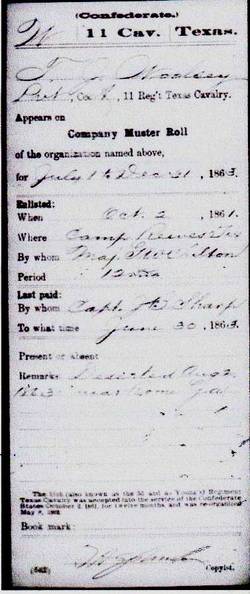 (Confederate.)
W 11 Cav. Texas.
T. J. Woolsey
Pvt, Co. , 11 Reg't Texas Cavalry.
Appears on
Company Muster Roll
of the organization named above,
for July 1 to Dec 31, 1863.
Enlisted:
When Oct. 2, 1861.
Where Camp Reeves Tex
By whom Maj.
Period 12 mos
Last paid:
By whom Capt. Sharp
To what time June 30, 1863.
Present or absent
Remarks: Deserted Aug 2,
1863 near Rome Ga.
The 11th (also known as the 3d and as Young's) Regiment
Texas Cavalry was accepted into the service of the Confederate
States October 2, 1861, for twelve months, and was re-organized
May 8, 1862.
Book mark:
(642) Copyist.